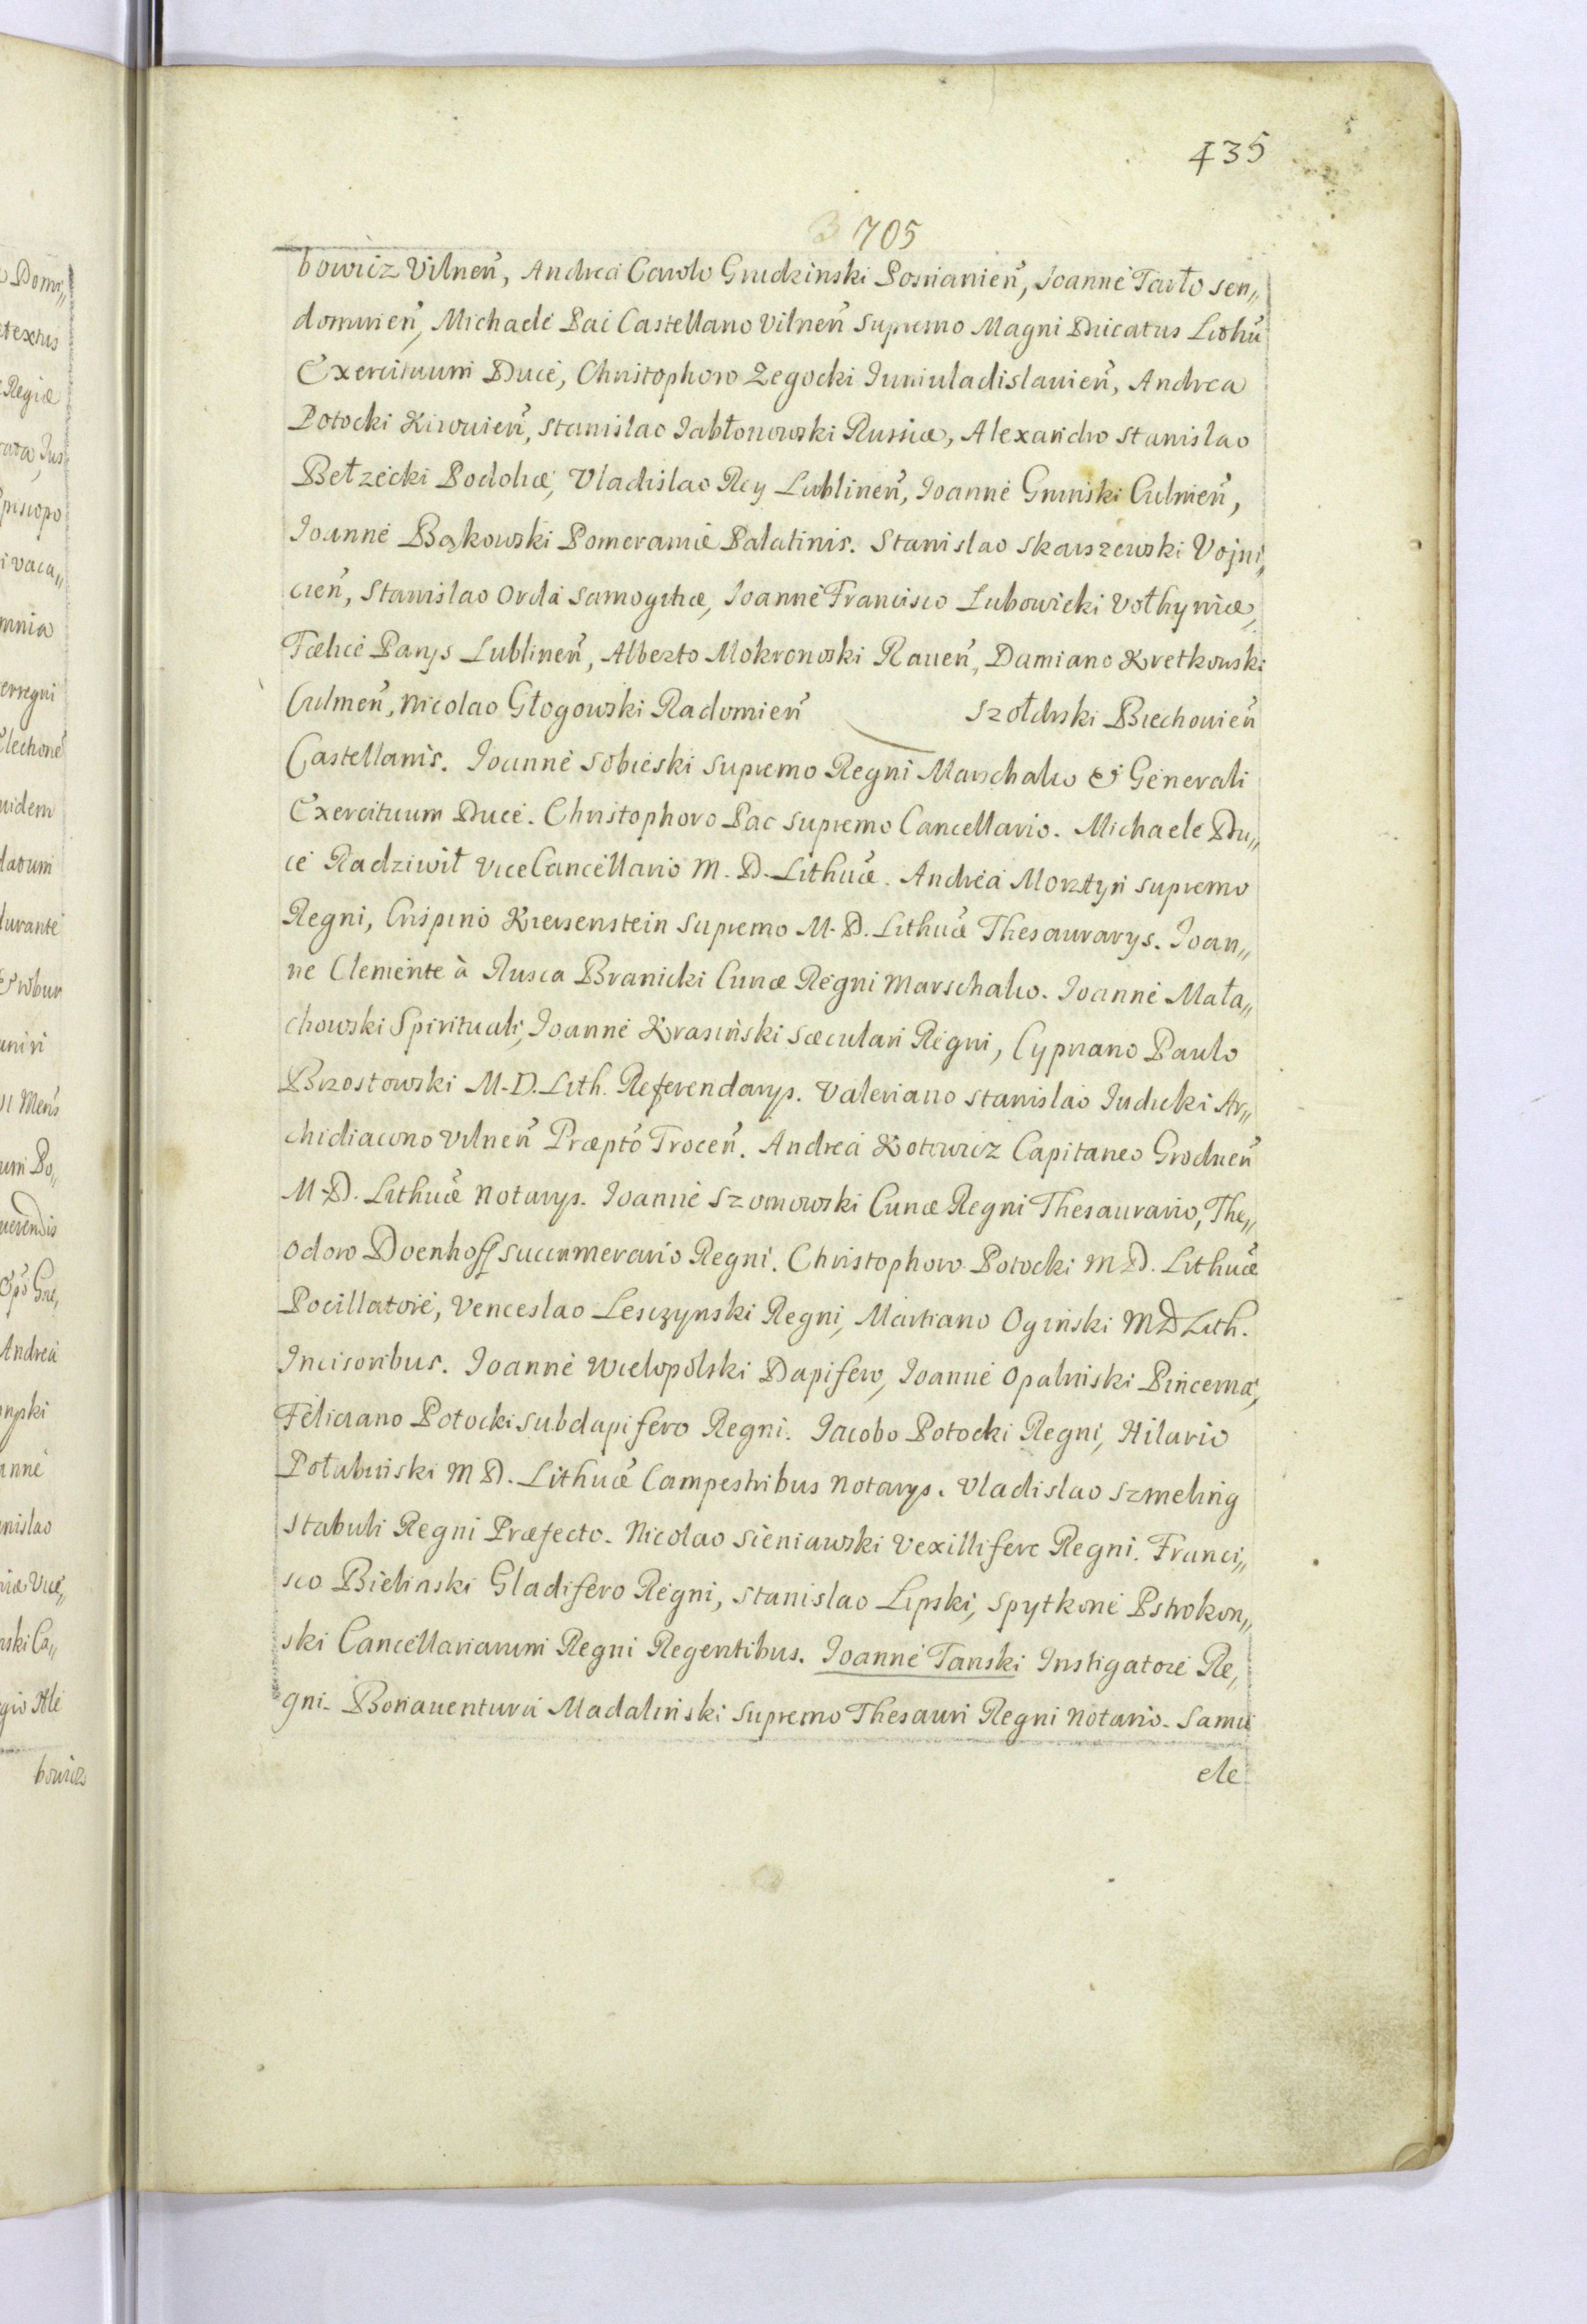 435
705
bowicz Vilneñ, Andrea Carolo Grudzinski Posnanieñ, Joanne Tarło sen„
domirieñ, Michaele Pac Castellano Vilneñ Supremo Magni Ducatus Lithu
Exercituum Duce, Christophoro Zegocki Juniuladislauieñ, Andrea
Potocki Kiiouieñ, Stanislao Jabłonowski Russiæ, Alexandro Stanislao
Bełzecki Podoliæ, Vladislao Rey Lublineñ, Joanne Gninski Culmeñ,
Joanne Bąkowski Pomeraniæ Palatinis. Stanislao Skarszewski Vojni„
cieñ, Stanislao Orda Samogitiæ, Joanne Francisco Lubowicki Vołhyniæ,
Fælice Parys Lublineñ, Alberto Mokronoski Raueñ, Damiano Kretkowski
Culmeñ, Nicolao Głogowski Radomieñ Szołdrski Biechouieñ
Castellanis. Joanne Sobieski Supremo Regni Marschalco & Generali
Exercituum Duce. Christophoro Pac Supremo Cancellario. Michaele Du„
ce Radziwił ViceCancellario M. D. Lithuæ. Andrea Morstyn Supremo
Regni, Crispino Kirersenstein Supremo M. D. Lithuæ Thesaurarys. Joan„
ne Clemente à Rusca Branicki Curiæ Regni Marschalco. Joanne Mała„
chowski Spirituali, Joanne Krasiński Sæculari Regni, Cypriano Paulo
Brzostowski M. D. Lith. Referendarys. Valeriano Stanislao Judicki Ar„
chidiacono Vilneñ Præpto Troceñ. Andrea Kotowicz Capitaneo Grodneñ
M. D. Lithuæ Notarys. Joanne Szomowski Curiæ Regni Thesaurario, The„
odoro Doenhoff Succamerario Regni. Christophoro Potocki M D. Lithuæ
Pocillatore, Venceslao Lesczynski Regni, Martiano Oginski M D Lith.
Incisoribus. Joanne Wielopolski Dapifero, Joanne Opaliniski Pincerna,
Feliciano Potocki Subdapifero Regni. Jacobo Potocki Regni, Hilario
Połubiński M D. Lithuæ Campestribus Notarys. Vladislao Szmeling
Stabuli Regni Præfecto. Nicolao Sieniawski Vexillifero Regni. Franci„
sco Bielinski Gladifero Regni, Stanislao Lipski, Spytkone Pstrokon„
ski Cancellariarum Regni Regentibus. Joanne Tanski Instigatore Re„
gni. Bonauentura Madalinski Supremo Thesauri Regni Notario. Samu
ele